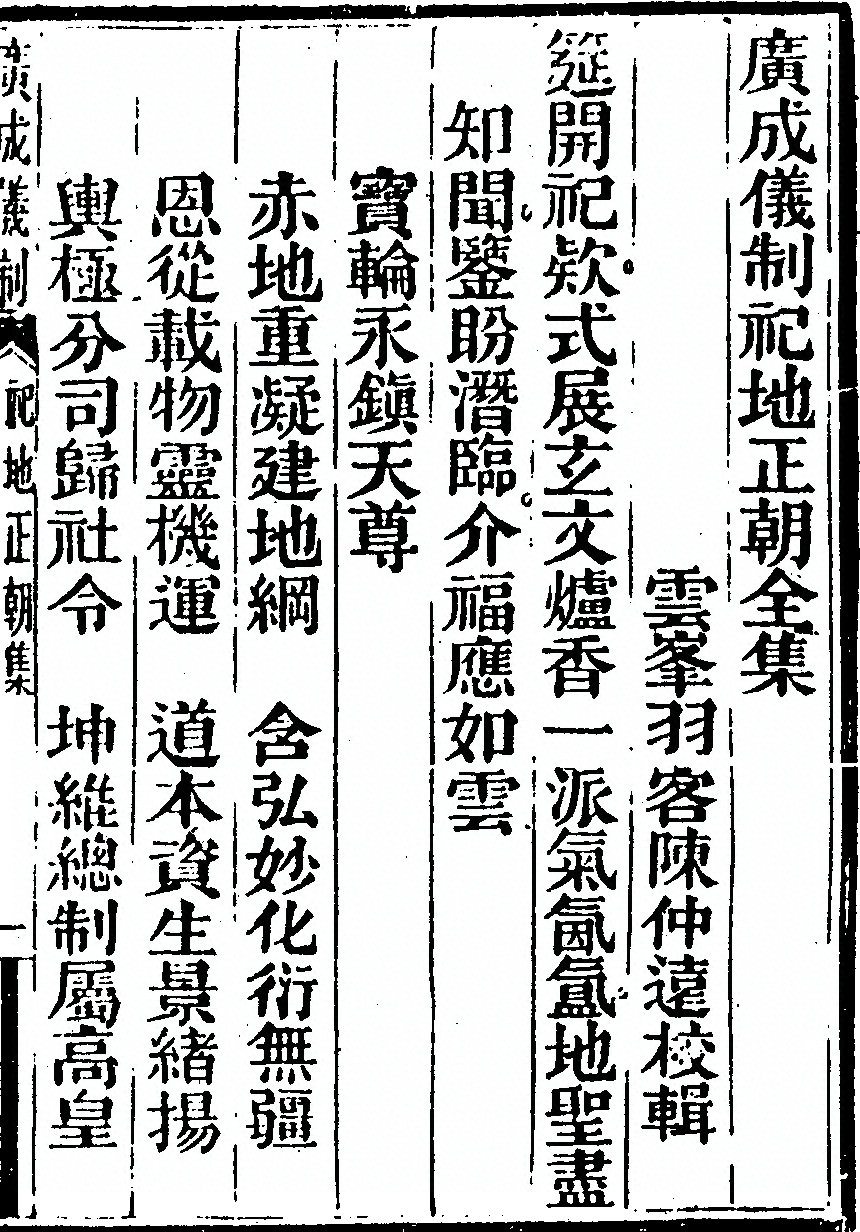 廣成儀制祀地正朝全集
雲峯羽客陳仲遠校輯
筵開祀欵式展玄文爐香一派氣氤氳地聖盡
知聞鑒盼潛臨介福應如雲
寶輪永鎮天尊
赤地重凝建地綱　含弘妙化衍無疆
恩從載物靈機運　道本資生景緒揚
輿極分司歸社令　坤維總制屬高皇
廣成儀制　祀地正朝集　一